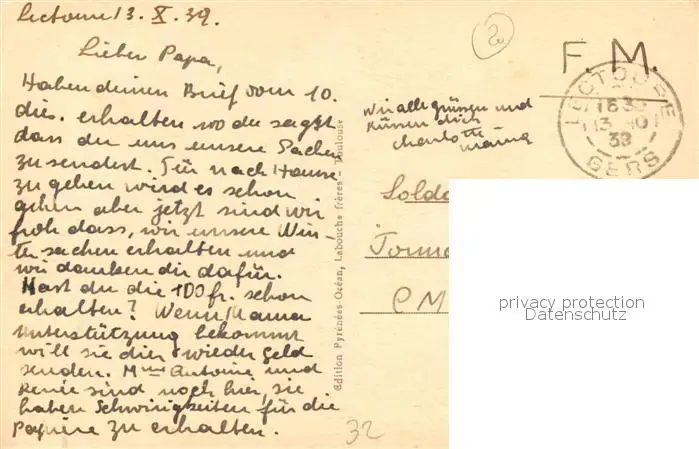 Lectoure 13. X. 39.
Lieber Papa,
Haben deinen Brief vom 10.
dis. erhalten wo du sagst
dass du uns unsere Sachen
zu sendest. Für nach Hause
zu gehen wird es schon
gehen aber jetzt sind wir
froh dass, wir unsere Win-
tersachen erhalten und
wir danken dir dafür.
Hast du die 100 fr. schon
erhalten? Wenn Mama
Unterstützung bekommt
will sie dir wieder Geld
senden. Mme Antoine und
Renée sind noch hier, sie
haben Schwirigkeiten für die
Papiere zu erhalten.
Wir alle grüssen und
küssen dich
Charlotte
Mama
Edition Pyrénées-Océan, Labouche frères - Toulouse
F. M.
LECTOURE
18 30
13 10
39
GERS
Solda
C M
32
privacy protection
Datenschutz